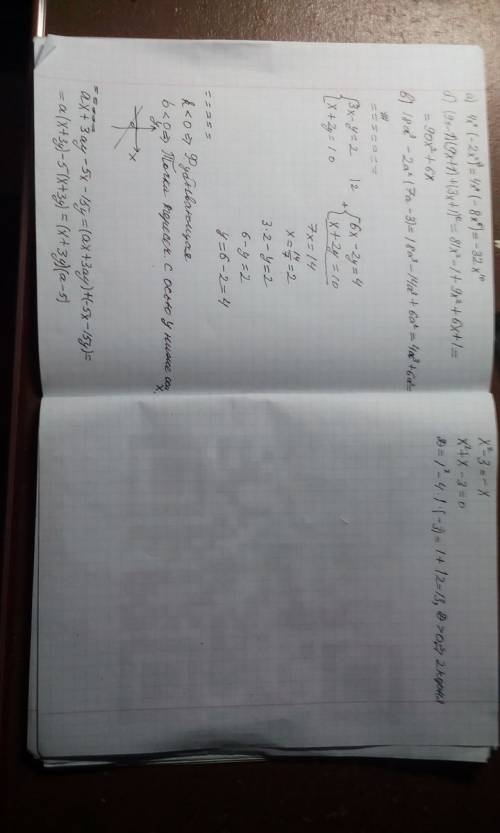 а) 4x⁴(-2x²)³ = 4x⁴(-8x⁶) = -32x¹⁰
б) (9x-1)(9x+1)+(3x+1)² = 81x²-1+9x²+6x+1=
= 90x²+6x
в) 18a³ - 2a²(7a-3) = 18a³-14a³+6a² = 4a³+6a²=
=====
{3x-y=2 |2
{x+2y=10
+{6x-2y=4
{x+2y=10
7x=14
x=14/7=2
3·2-y=2
6-y=2
y=6-2=4
=====
k<0 => Ф убывающая
b<0 => Точки перес. с осью y ниже оси x.
y
x
=====
ax+3ay-5x-15y=(ax+3ay)+(-5x-15y)=
=a(x+3y)-5(x+3y)=(x+3y)(a-5)
x²-3=-x
x²+x-3=0
D=1²-4·1·(-3)=1+12=13, D>0 => 2 корня